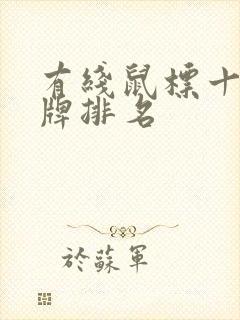 有綫鼠標十
牌排名
於蘇軍